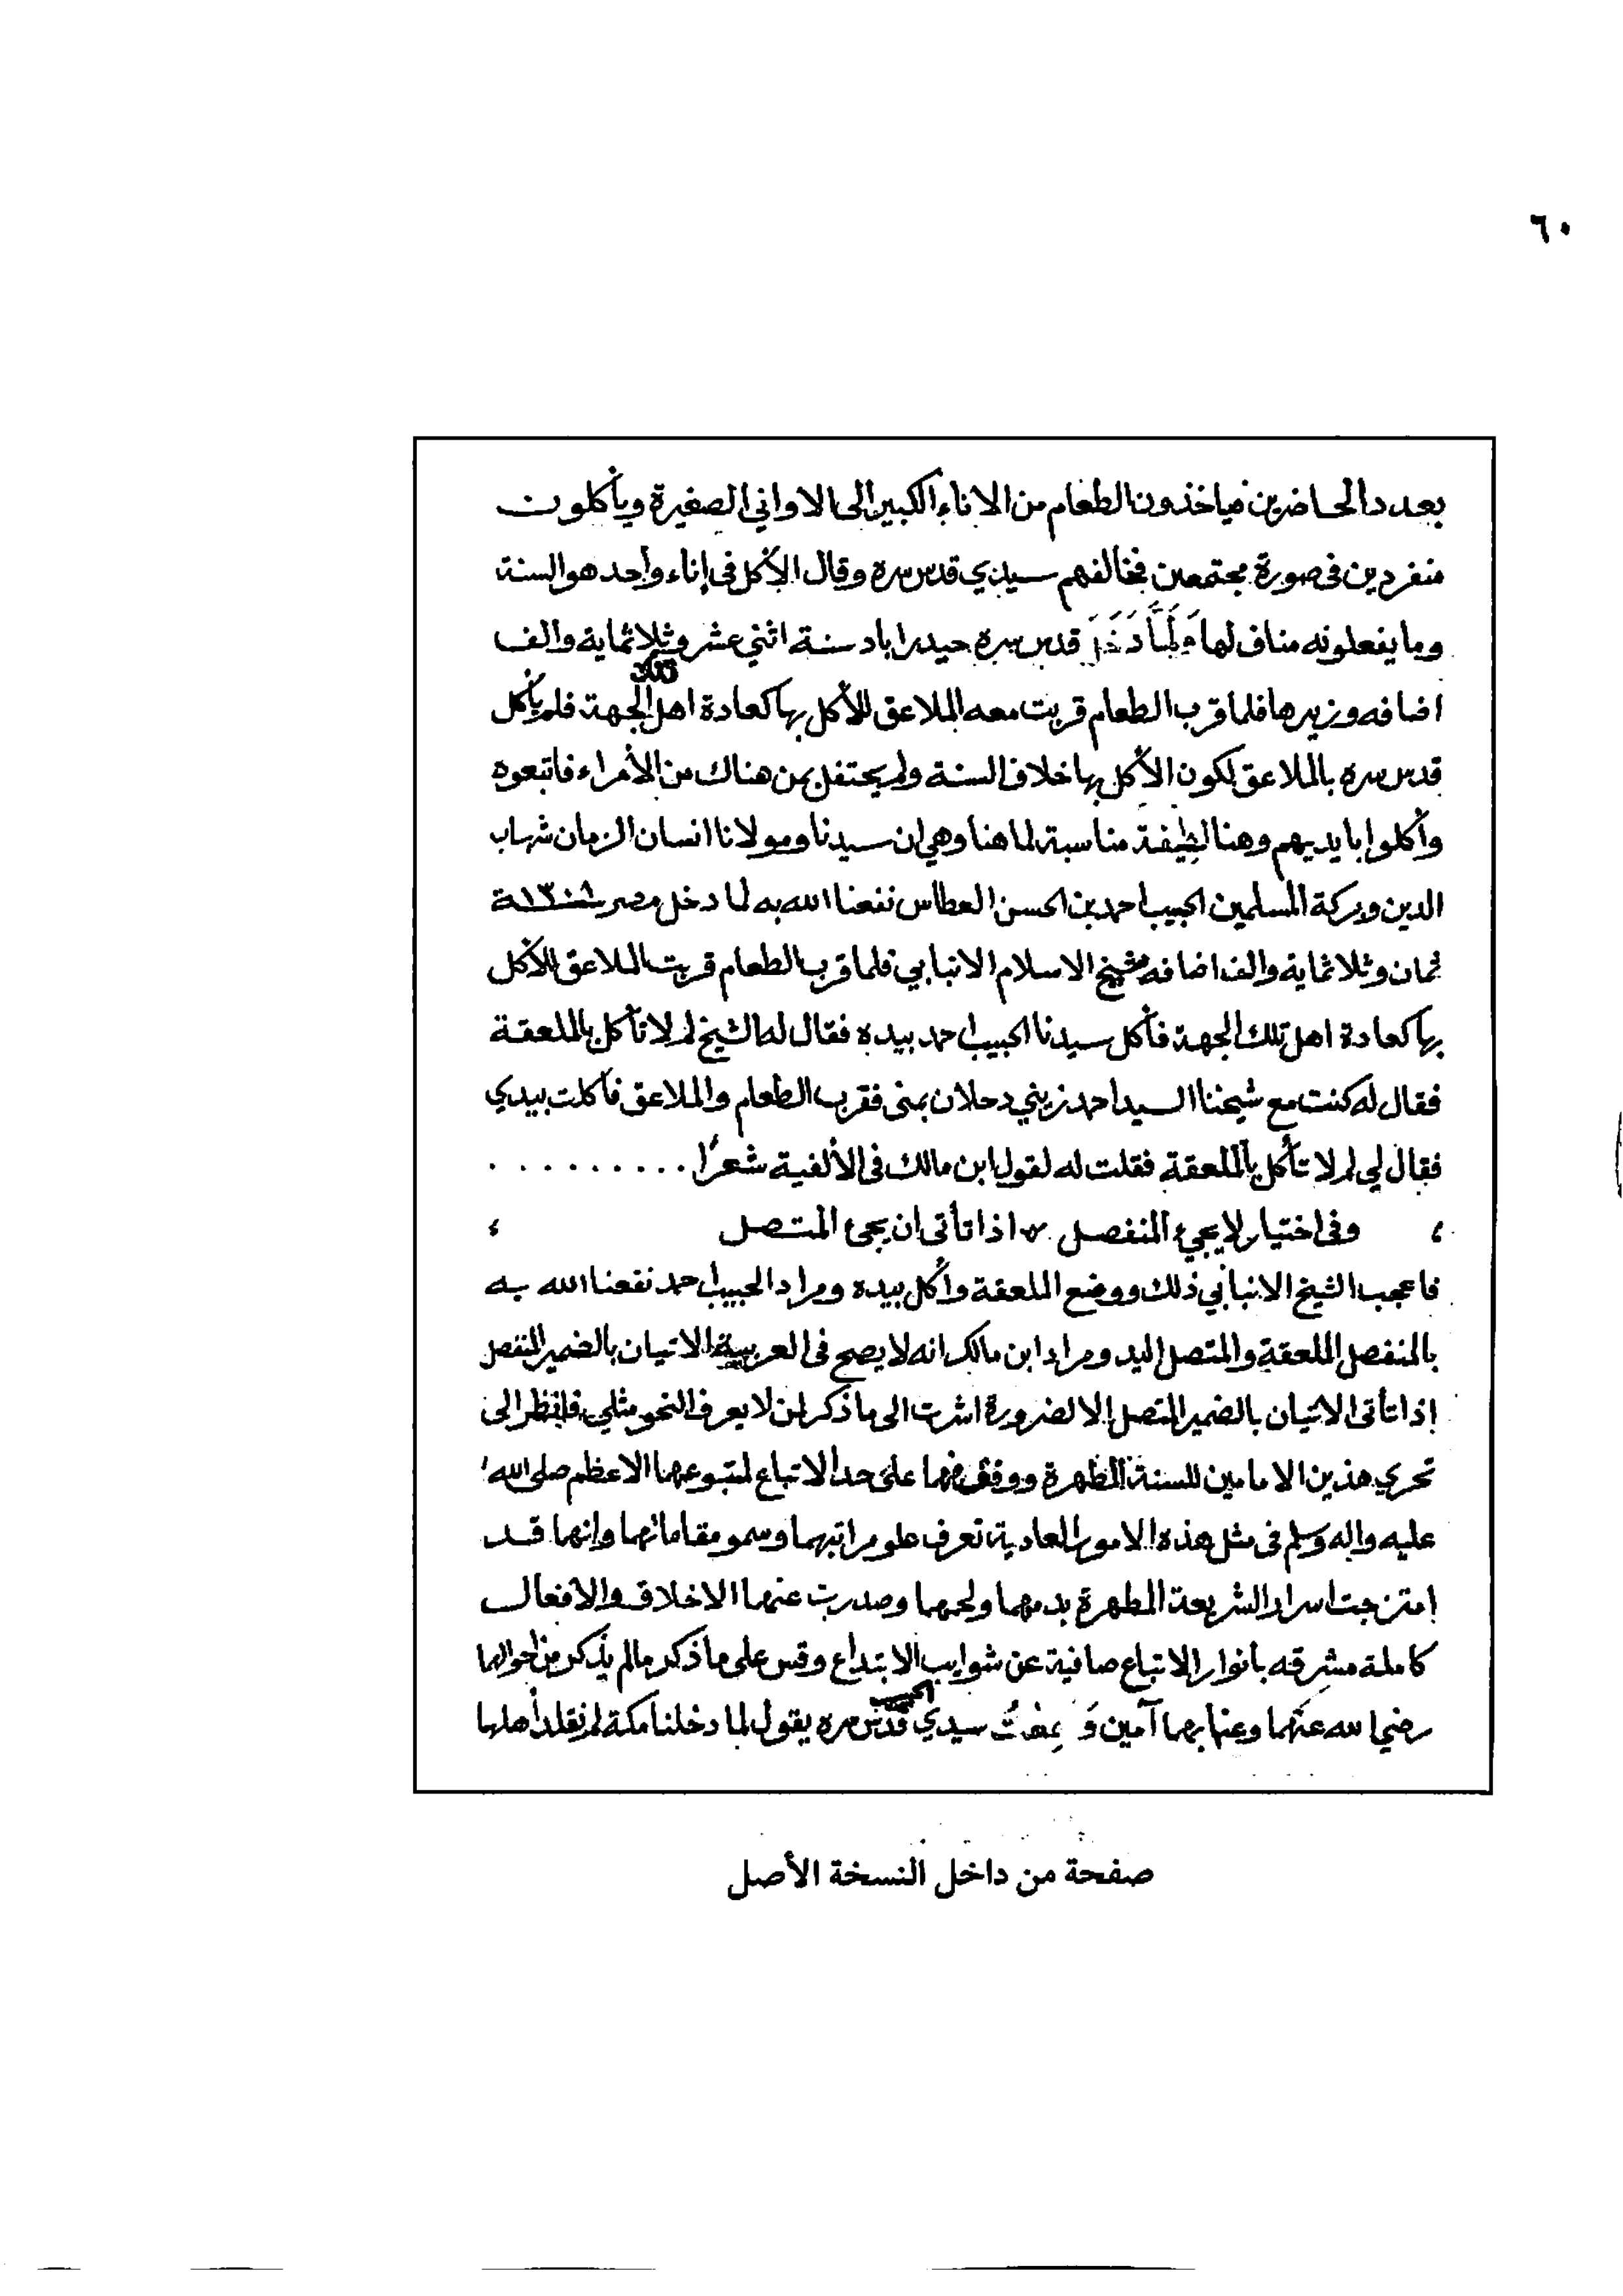 ٦٠
بعدد الحاضرين فياخذون الطعام من الاناء الكبير الى الاواني الصغيرة ويأكلون
منفردين في صورة مجتمعين فخالفهم سيدي قدس سره وقال الأكل في إناء واحد هو السنة
وما يفعلونه مناف لها وَلَمَّا دَخَلَ قدس سره حيدراباد سنة اثني عشر وثلاثماية والف
اضافه وزيرها فلما قرب الطعام قربت معه الملاعق للأكل بها كعادة اهل تلك الجهة فلم يأكل
قدس سره بالملاعق لكون الأكل بها خلاف السنة ولم يحتفل بمن هناك من الأمراء فاتبعوه
وأكلوا بايديهم وهنا لطيفة مناسبة لما هنا وهي ان سيدنا ومولانا انسان الزمان شهاب
الدين وبركة المسلمين الحبيب احمد بن الحسن العطاس نفعنا الله به لما دخل مصر سنة ١٣٠٨
ثمان وثلاثماية والف اضافه شيخ الاسلام الانبابي فلما قرب الطعام قربت الملاعق للأكل
بها كعادة اهل تلك الجهة فأكل سيدنا الحبيب احمد بيده فقال له الشيخ لم لا تأكل بالملعقة
فقال له كنت مع شيخنا السيد احمد زيني دحلان بمنى فقرب الطعام والملاعق فأكلت بيدي
فقال لي لم لا تأكل بالملعقة فقلت له لقول ابن مالك في الألفية شعرًا . . . . . . . . .
، وفي اختيار لا يجيء المنفصل ، اذا تأتى ان يجئ المتصل ،
فاعجب الشيخ الانبابي ذلك ووضع الملعقة وأكل بيده ومراد الحبيب احمد نفعنا الله به
بالمنفصل الملعقة والمتصل اليد ومراد ابن مالك انه لا يصح في العربية الاتيان بالضمير المنفصل
إذا تأتى الاتيان بالضمير المتصل إلا لضرورة اشرت الى ما ذكر لمن لا يعرف النحو مثلي فانظر الى
تحري هذين الامامين للسنة المطهرة ووقوفهما على حد الاتباع لمتبوعهما الاعظم صلى الله
عليه واله وسلم في مثل هذه الامور العادية تعرف علو مراتبهما وسمو مقاماتهما وإنهما قد
إمتزجت اسرار الشريعة المطهرة بدمهما ولحمهما وصدرت عنهما الاخلاق والافعال
كاملة مشرقه بأنوار الاتباع صافية عن شوايب الابتداع وقس على ما ذكر مالم يذكر من احوالهما
رضي الله عنهما وعنا بهما آمين وَسمعتُ سيدي الحبيب قدس سره يقول لما دخلنا مكة لم نقلد أهلها
صفحة من داخل النسخة الأصل